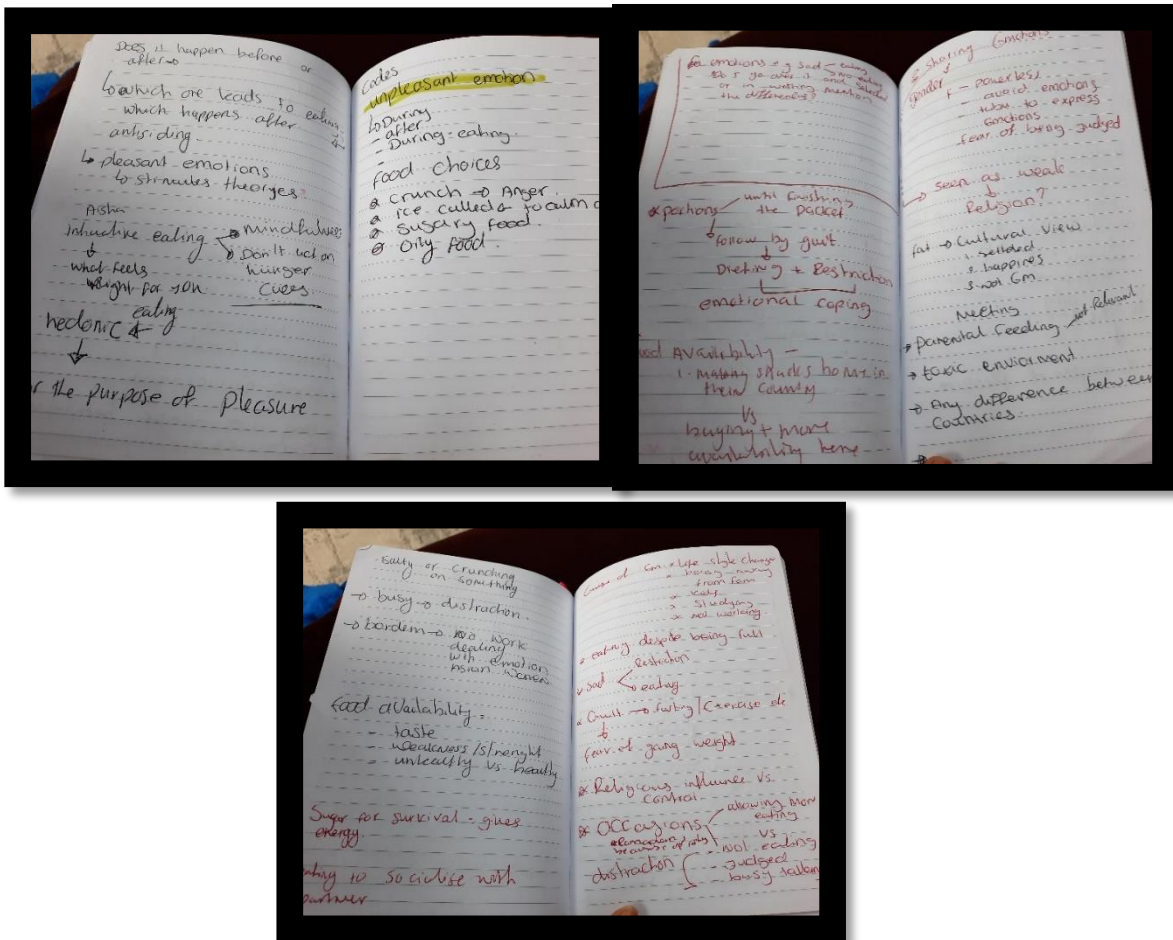 Does it happen before or
after →
↳ which one leads to eating
which happens after
↳ pleasant emotions
↳ stimules theoryes
Aisha
intuctive eating
mindfulness
Don't act on
hunger
Cues
what feels
right for you
eating
hedonic
the purpose of pleasure
Codes
unpleasant emotion
↳ During
- after
- During-eating
food Choices
crunch → Anger
ice to calm
Sugary food
Oily food
emotions eg sad
eating
no eating
go over it and
the
portions
until finishing
the packet
follow by guilt
Dieting + Restriction
emotional coping
Availability -
1. Making home in
their county
Vs
buying + more
availability here
sharing Emotions
Gender
F - powerless
- avoid emotions
- to express
Emotions
fear of being judged
→ seen as weak
Religion?
fat → Cultural View
1. settled
2. happines
3. not Gm
Meeting
→ parental feeding not Relevant
→ toxic enviorment
→ Any difference between
Countries
Salty or crunching
on something
→ busy → distraction.
→ bordem → no work
dealing
with emotion
Asian women
food availability =
- taste
- weakness
- unhealthy vs healthy
Sugar for survival - gives
energy.
to socilise with
partner
Cause of Em = life style change
from fam
kids
Studying
not working
eating despite being full
sad
Restriction
eating
Guilt → fasting / Exercise
fear of weight
Religious influence Vs
Control
Occasions
Ramadan
because of
allowing more
eating
vs
distraction
- Not eating
- judged
- busy